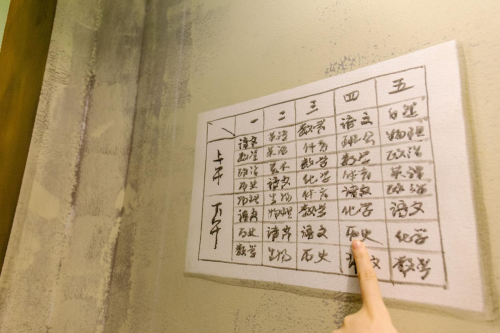 一 二 三 四 五
上午
语文 英语 数学 语文 自然
数学 英语 体育 班会 物理
政治 美术 数学 数学 政治
历史 语文 化学 体育 英语
下午
物理 生物 体育 语文 政治
语文 物理 数学 化学 语文
历史 语文 语文 历史 化学
数学 生物 历史 语文 数学